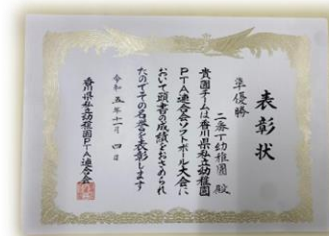 表彰状
準優勝
二番丁幼稚園 殿
貴園チームは香川県私立幼稚園
PTA連合会ソフトボール大会に
おいて頭書の成績をおさめられ
たのでその名誉を表彰します
令和五年十一月四日
香川県私立幼稚園PTA連合会